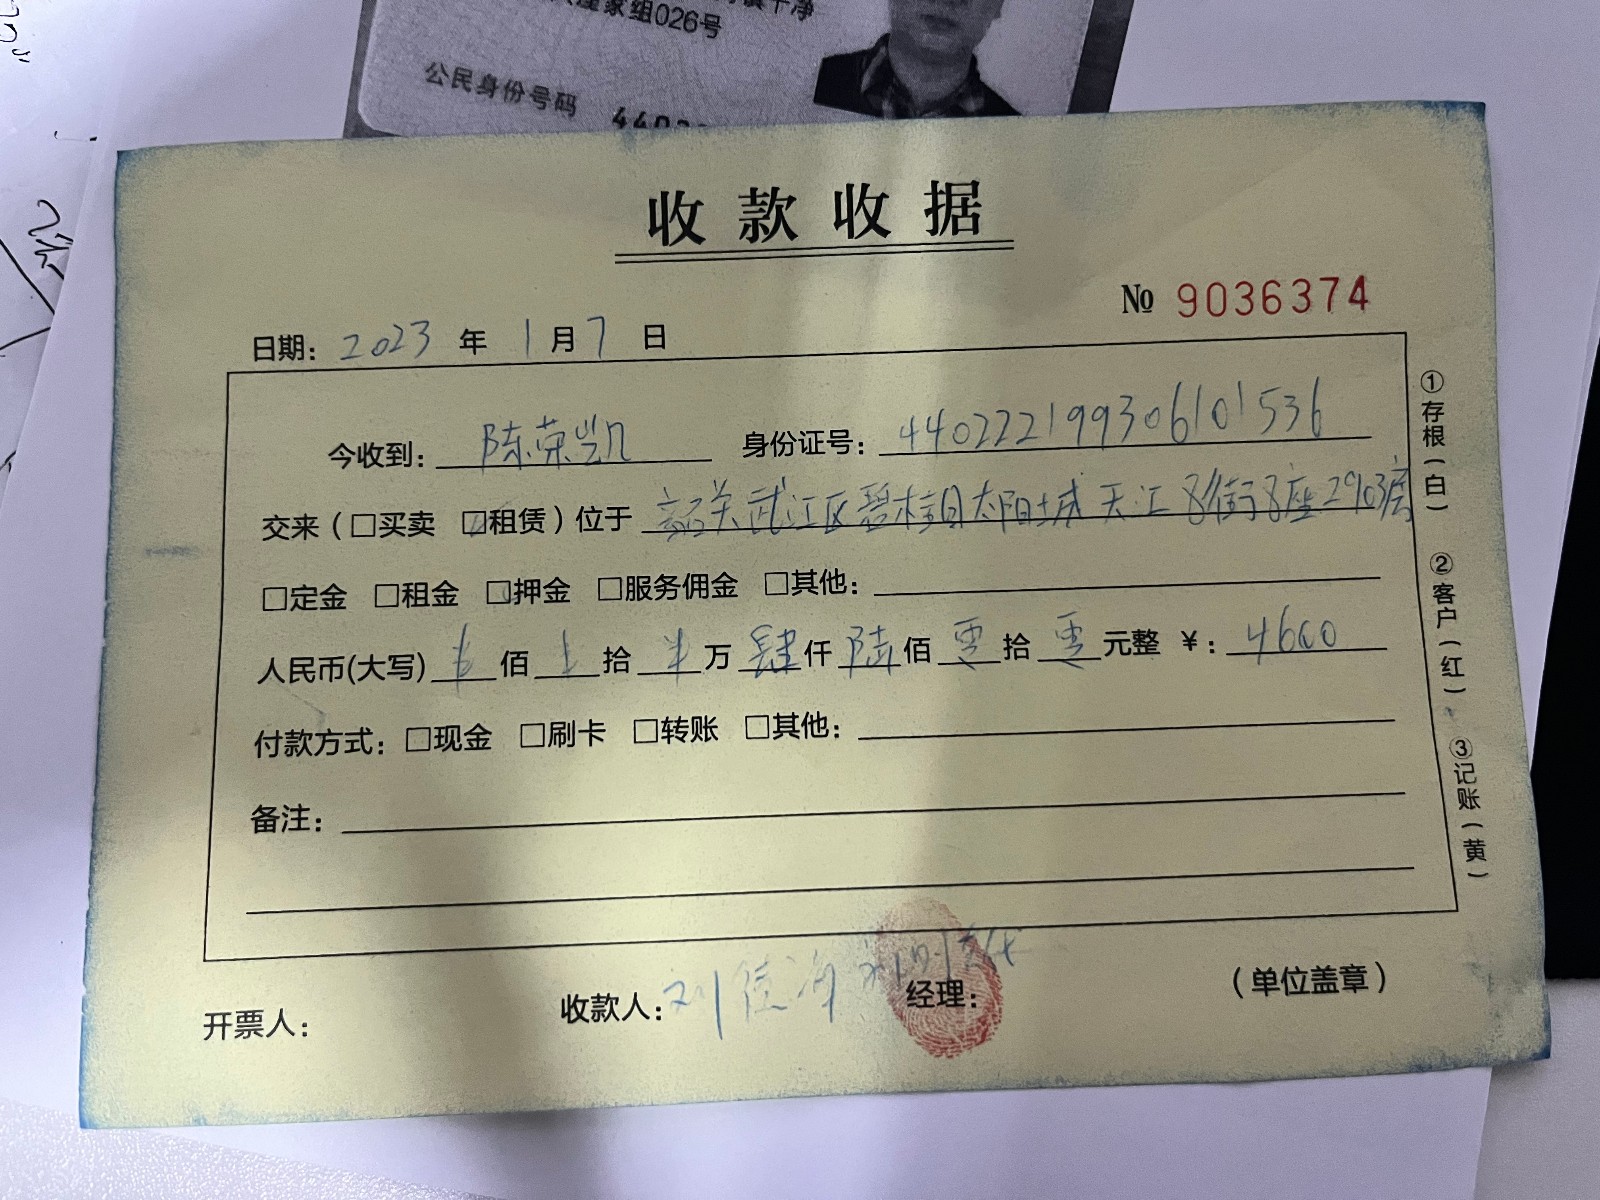 组026号
公民身份号码 4402
收款收据
№ 9036374
日期: 2023 年 1 月 7 日
今收到: 陈荣凯 身份证号: 440222199306101536
交来(□买卖 ☑租赁)位于 韶关武江区碧桂园太阳城天汇8街8座2903房
□定金 □租金 ☑押金 □服务佣金 □其他:
人民币(大写) 佰 拾 万 肆 仟 陆 佰 零 拾 零 元整 ¥: 4600
付款方式: □现金 □刷卡 □转账 □其他:
备注:
开票人: 收款人: 刘 经理: (单位盖章)
①存根(白) ②客户(红) ③记账(黄)